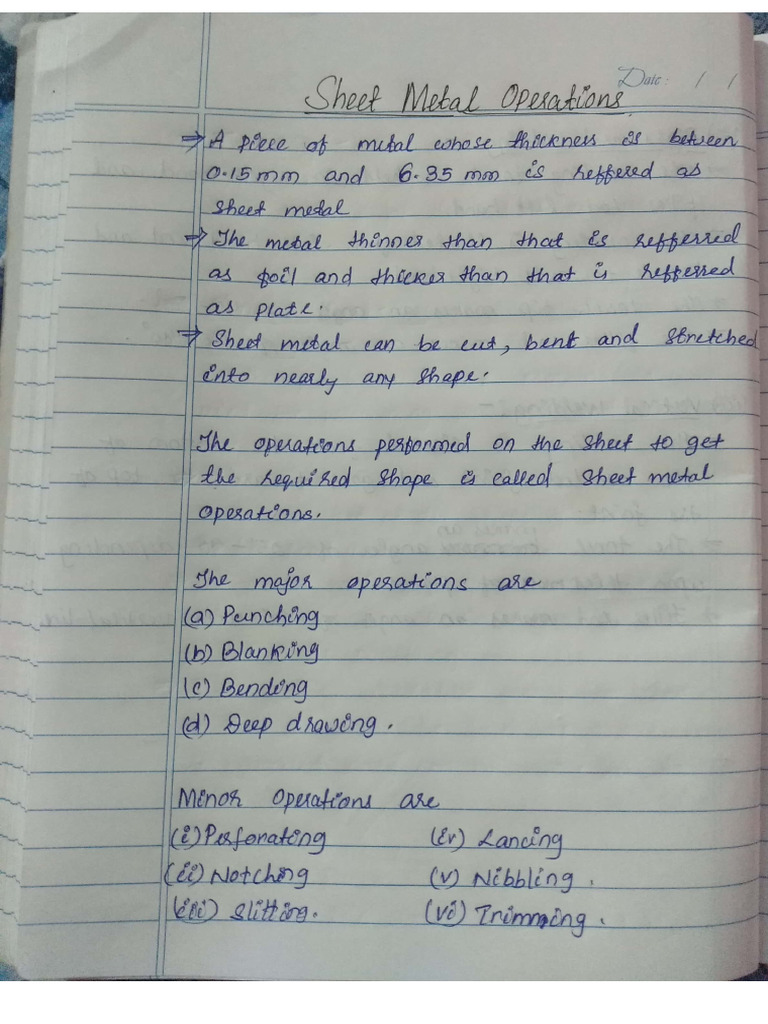 Date: / /
Sheet Metal Operations
⇒ A piece of metal whose thickness is between
0.15 mm and 6.35 mm is reffered as
sheet metal
⇒ The metal thinner than that is refferred
as foil and thicker than that is refferred
as plate.
⇒ Sheet metal can be cut, bent and stretched
into nearly any shape.
The operations performed on the sheet to get
the required shape is called sheet metal
operations.
The major operations are
(a) Punching
(b) Blanking
(c) Bending
(d) Deep drawing.
Minor operations are
(i) Perforating (iv) Lancing
(ii) Notching (v) Nibbling.
(iii) Slitting. (vi) Trimming.